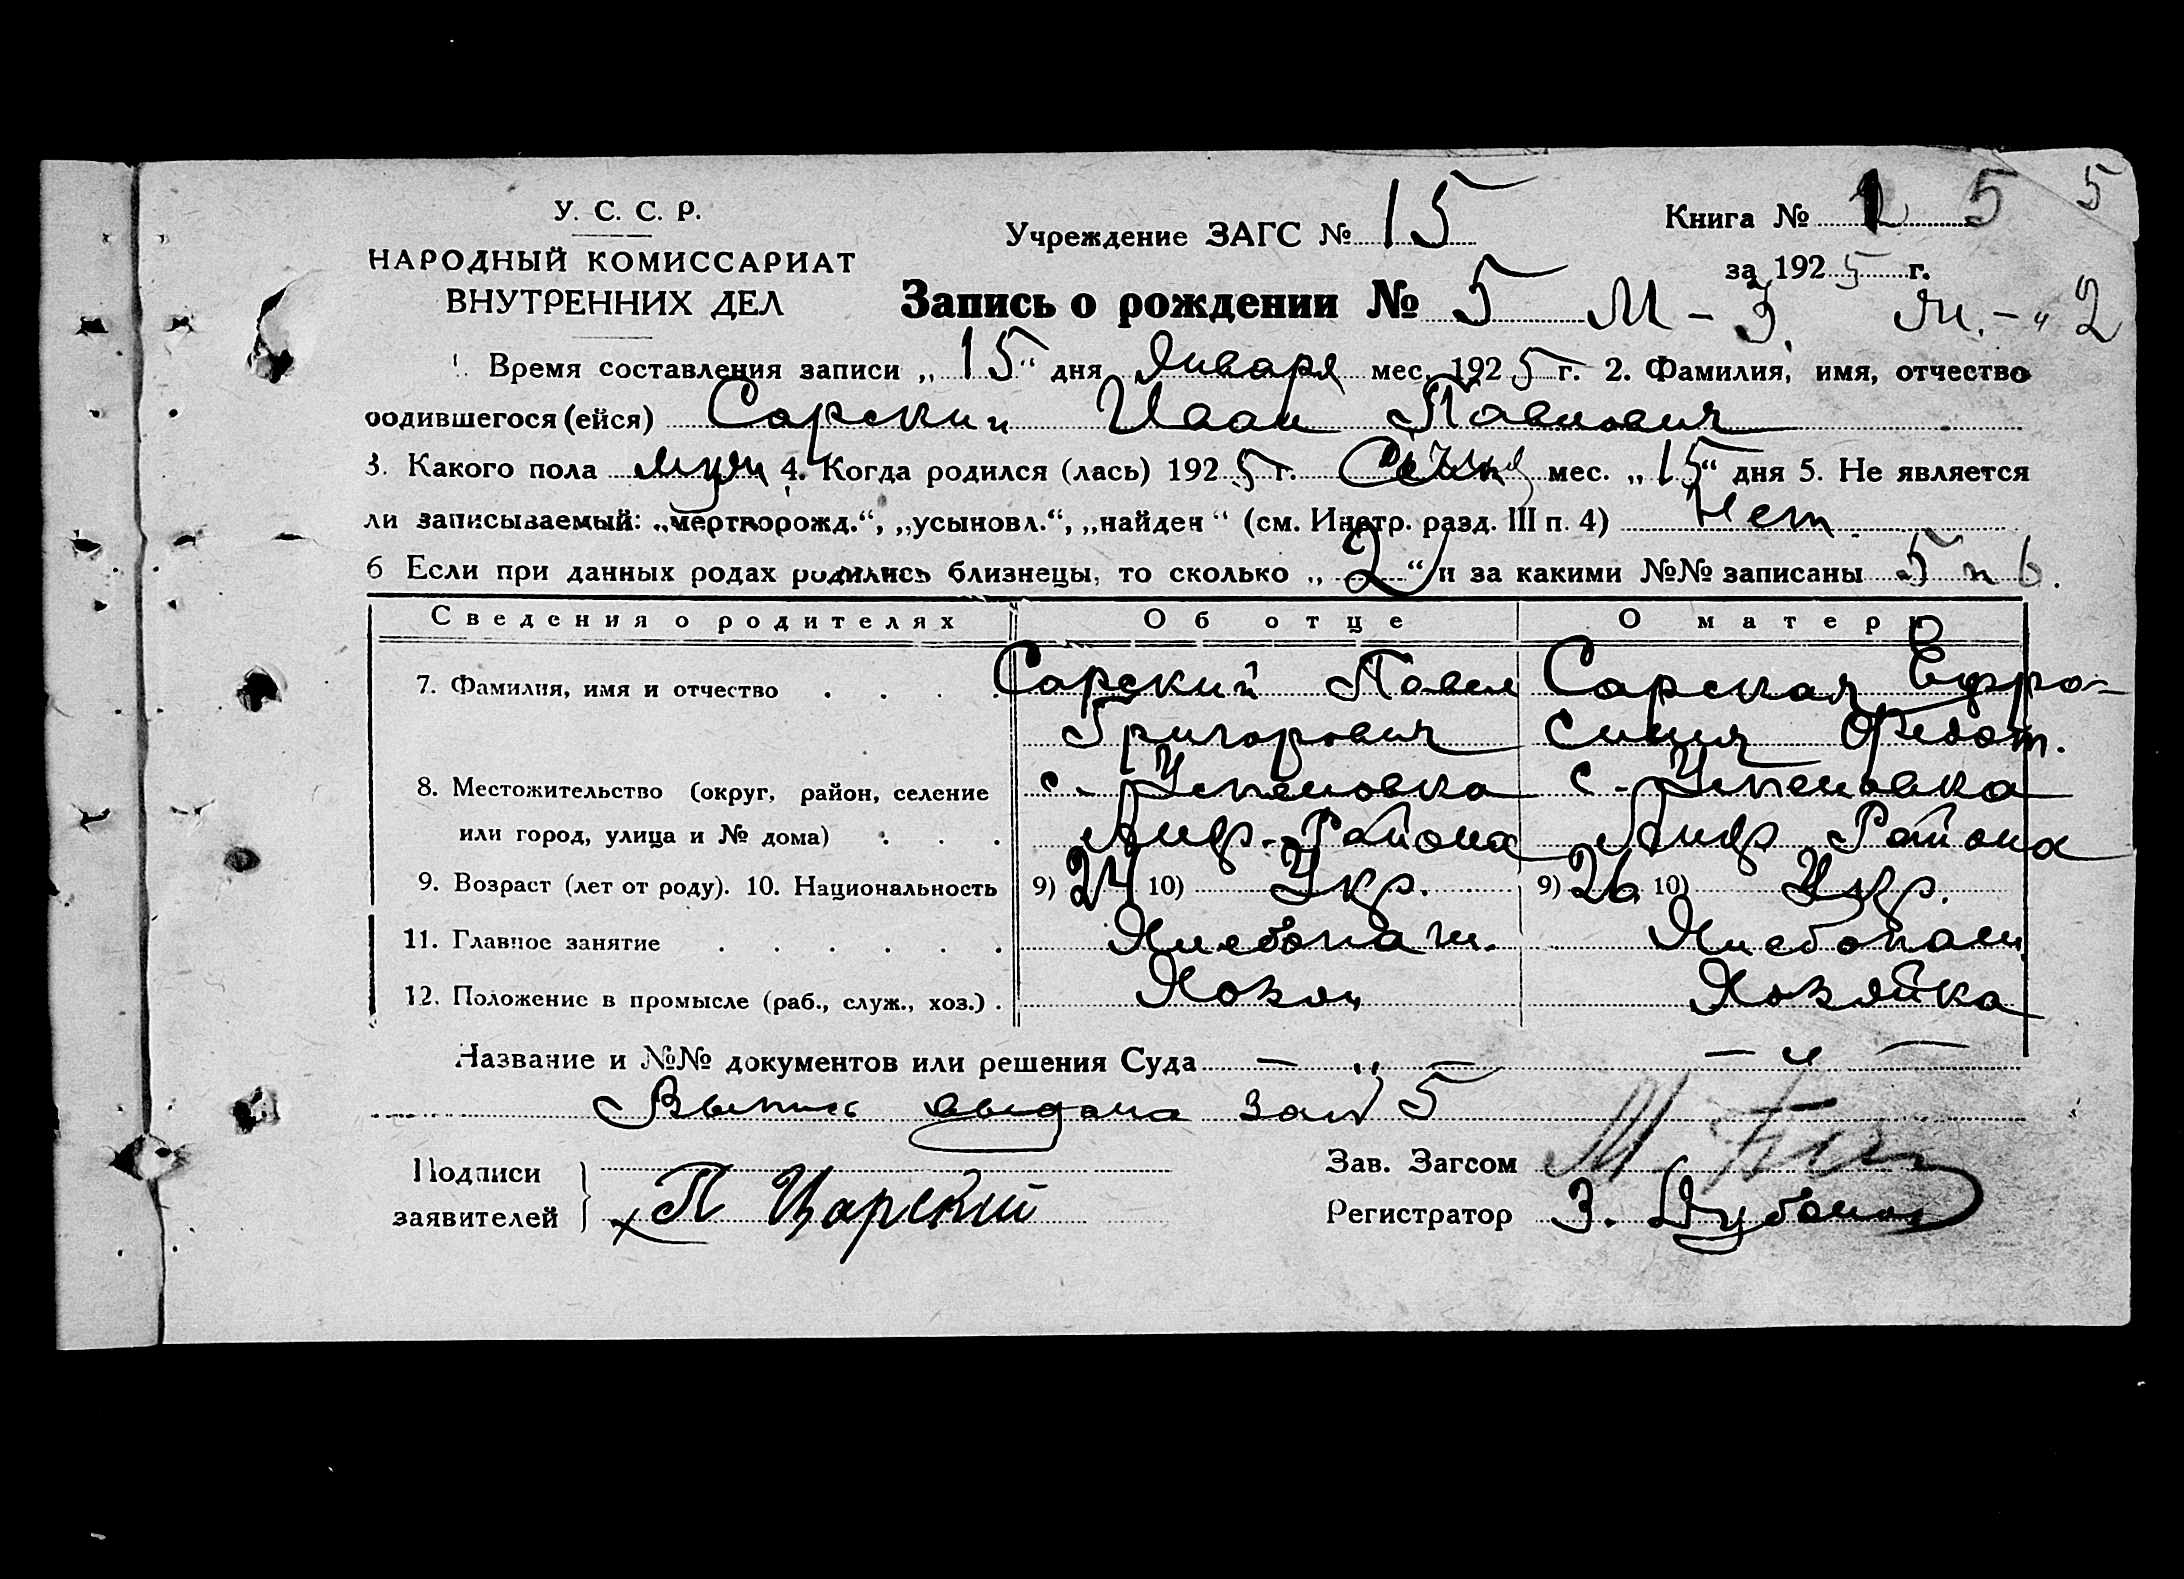 У. С. С. Р.
НАРОДНЫЙ КОМИССАРИАТ
ВНУТРЕННИХ ДЕЛ
Учреждение ЗАГС № 15
Книга № 5 5
за 1925 г.
Запись о рождении № 5 М - 3, - „ 2
1. Время составления записи „15“ дня Января мес. 1925 г. 2. Фамилия, имя, отчество
родившегося (ейся) Сарский Иван Павлович
3. Какого пола муж 4. Когда родился (лась) 1925 г. мес. „15“ дня 5. Не является
ли записываемый: „мертворожд.“, „усыновл.“, „найден“ (см. Инстр. разд. III п. 4) Нет
6 Если при данных родах родились близнецы, то сколько „2“ и за какими №№ записаны 5 и 6.
Сведения о родителях Об отце О матери
7. Фамилия, имя и отчество . . . . Сарский Павел Сарская Ефро-
Григорович синия Федот.
8. Местожительство (округ, район, селение с. Успеновка с. Успеновка
или город, улица и № дома) . . . Района Района
9. Возраст (лет от роду). 10. Национальность 9) 24 10) Укр. 9) 26 10) Укр.
11. Главное занятие . . . . . . Хлебопаш. Хлебопаш
12. Положение в промысле (раб., служ., хоз.) . Хозяин Хозяйка
Название и №№ документов или решения Суда — „ — — „ —
Выпись выдана за № 5
Подписи
заявителей
П Царский
Зав. Загсом М
Регистратор З.